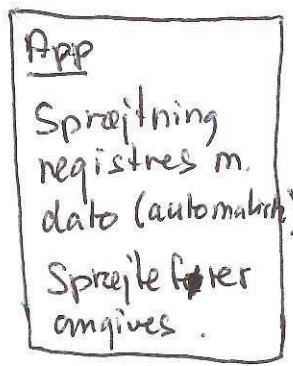 App
Sprøjtning
registres m.
dato (automatisk)
Sprøjtefører
angives.